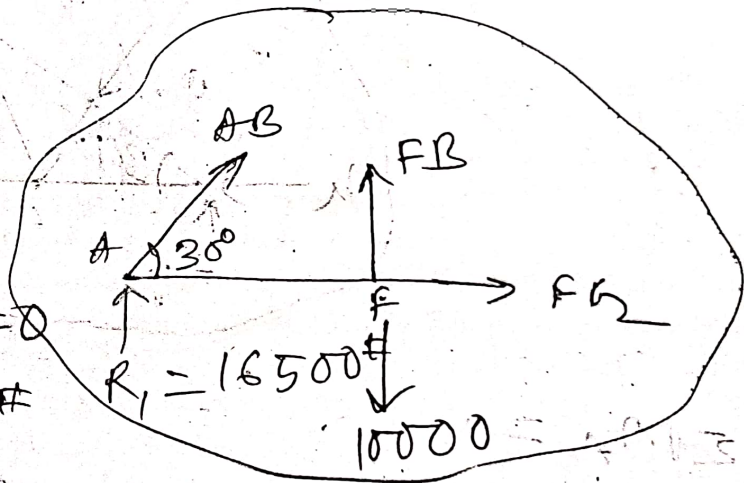 AB
FB
A 30°
F FG
=0
R₁ = 16500#
#
10000